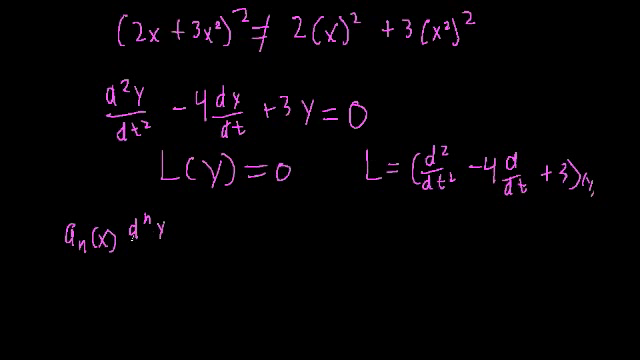 (2x + 3x²)² ≠ 2(x)² + 3(x²)²
d²y/dt² - 4 dy/dt + 3y = 0
L(y) = 0 L = (d²/dt² - 4 d/dt + 3)(y)
aₙ(x) dⁿy